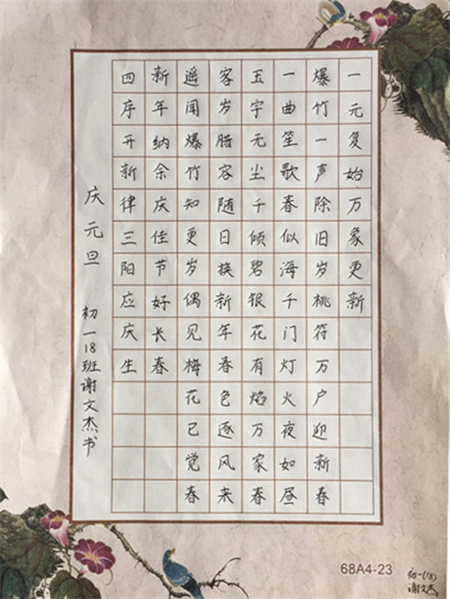 一元复始万象更新
爆竹一声除旧岁桃符万户迎新春
一曲笙歌春似海千门灯火夜如昼
玉宇无尘千倾碧银花有焰万家春
客岁腊容随日换新年春色逐风来
遥闻爆竹知更岁偶见梅花已觉春
新年纳余庆佳节好长春
四序开新律三阳应庆生
庆元旦 初一18班谢文杰书
68A4-23
初一(18)
谢文杰